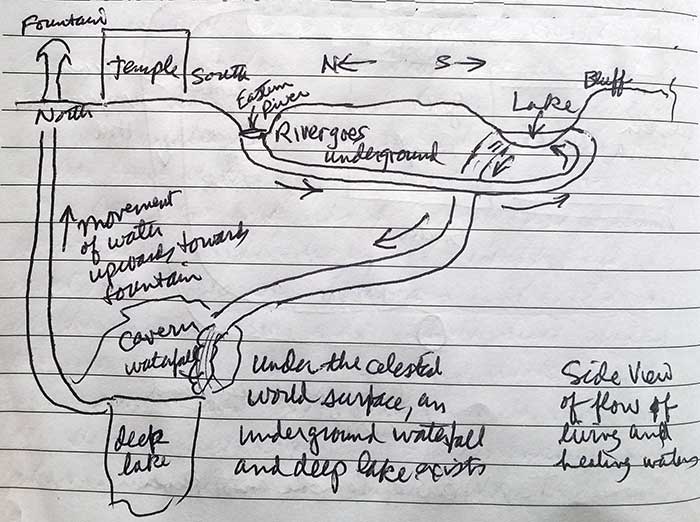 Fountain
temple
South
N ← S →
Bluff
North
Eastern
River
Lake
River goes
underground
movement
of water
upwards towards
fountain
Cavern
waterfall
deep
lake
under the celestial
world surface, an
underground waterfall
and deep lake exists
Side View
of flow of
living and
healing waters